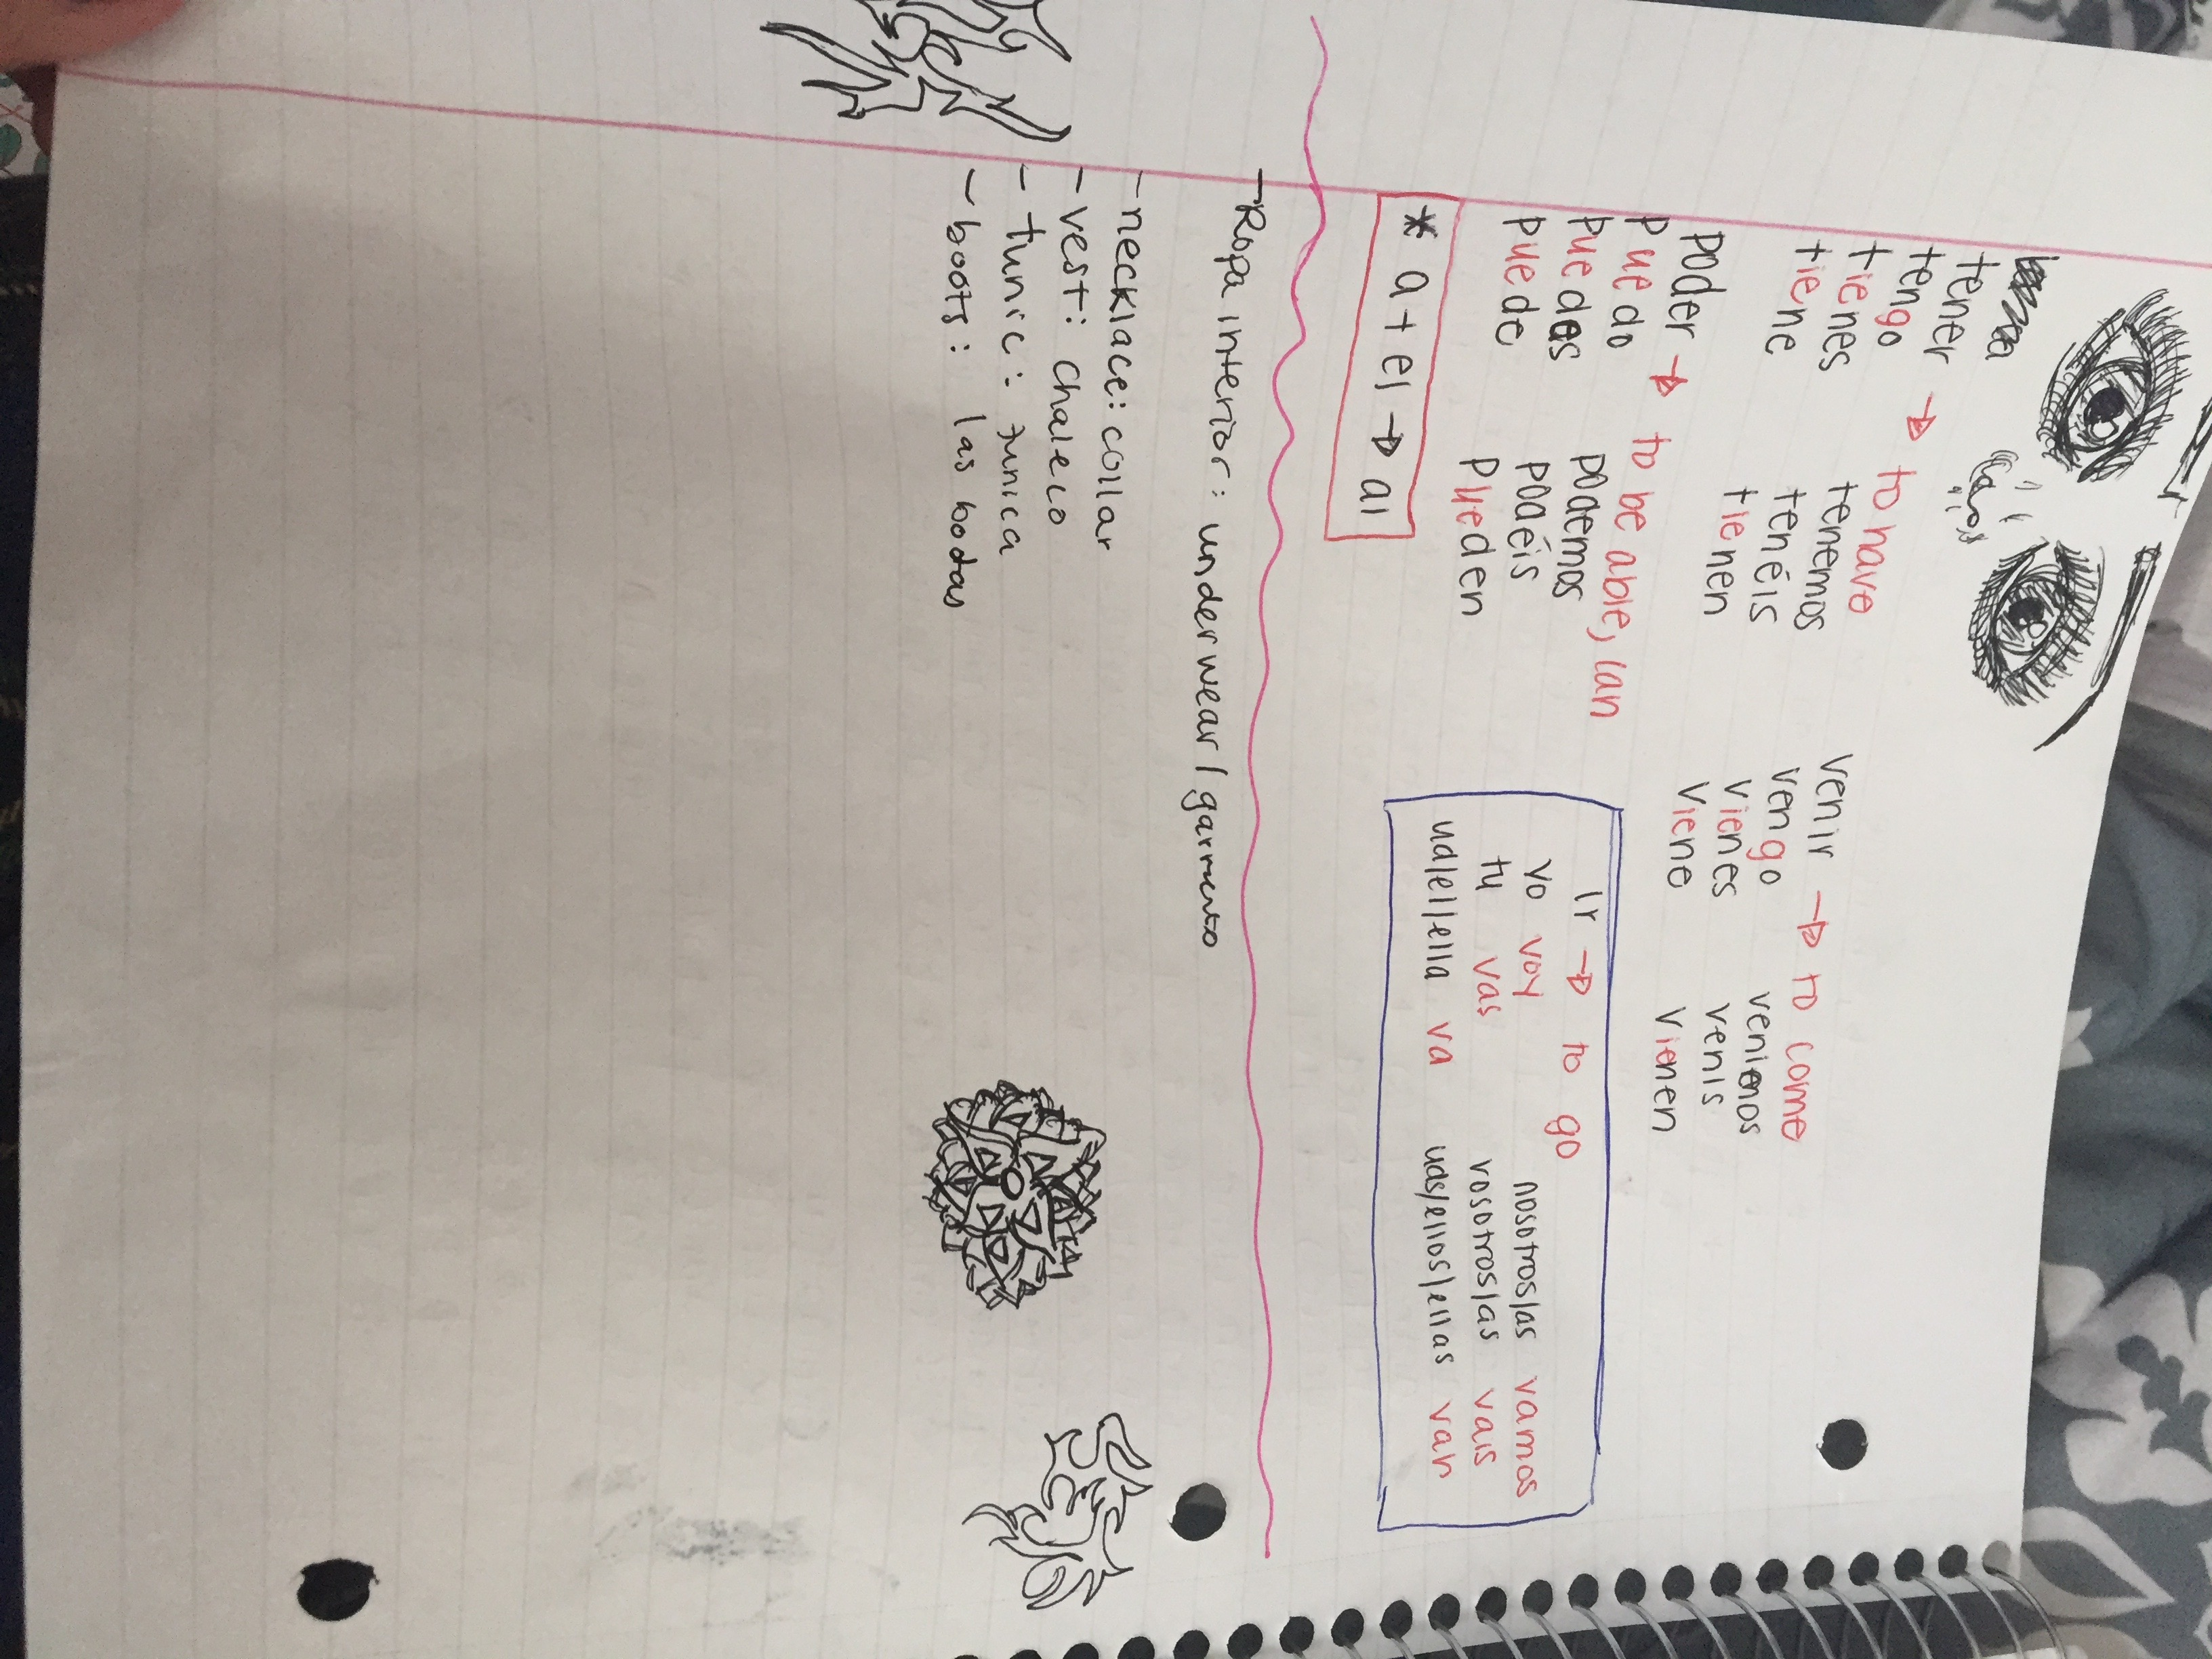 tener → to have
tengo tenemos
tienes tenéis
tiene tienen
venir → to come
vengo venimos
vienes venis
viene vienen
poder → to be able, can
puedo podemos
puedes podéis
puede pueden
* a + el → al
Ir → to go
yo voy nosotros/as vamos
tu vas vosotros/as vais
ud/el/ella va uds/ellos/ellas van
- Ropa interior: underwear/garmento
- necklace: collar
- vest: chaleco
- tunic: tunica
- boots: las botas